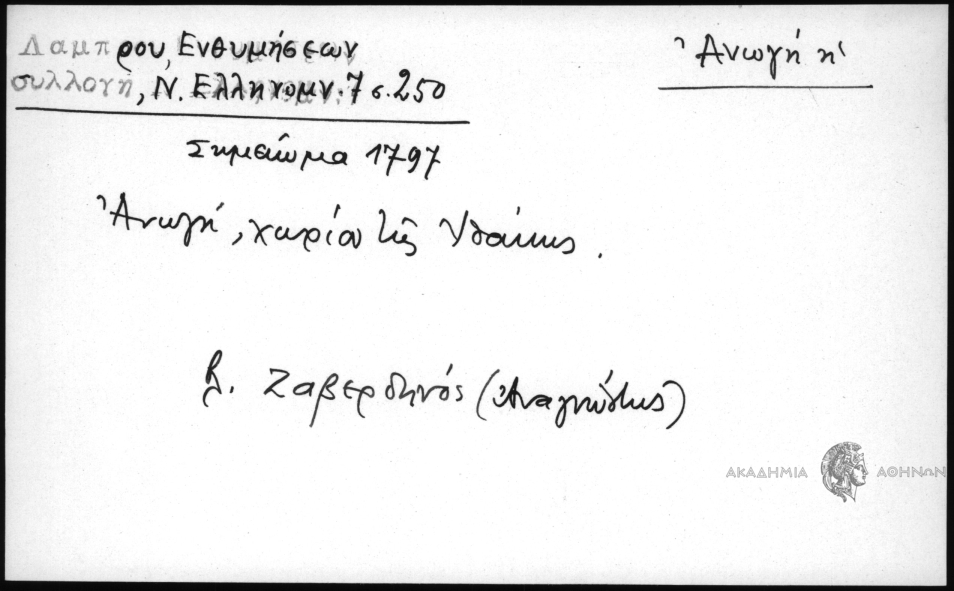 Λαμπρου, Ενθυμήσεων
συλλογή, Ν. Ελληνομν. 7 σ. 250
Ἀνωγή ἡ
Σημείωμα 1797
Ἀνωγή, χωρίον τῆς Ἰθάκης.
βλ. Ζαβερδηνός (Ἀναγνώστης)
ΑΚΑΔΗΜΙΑ ΑΘΗΝΩΝ